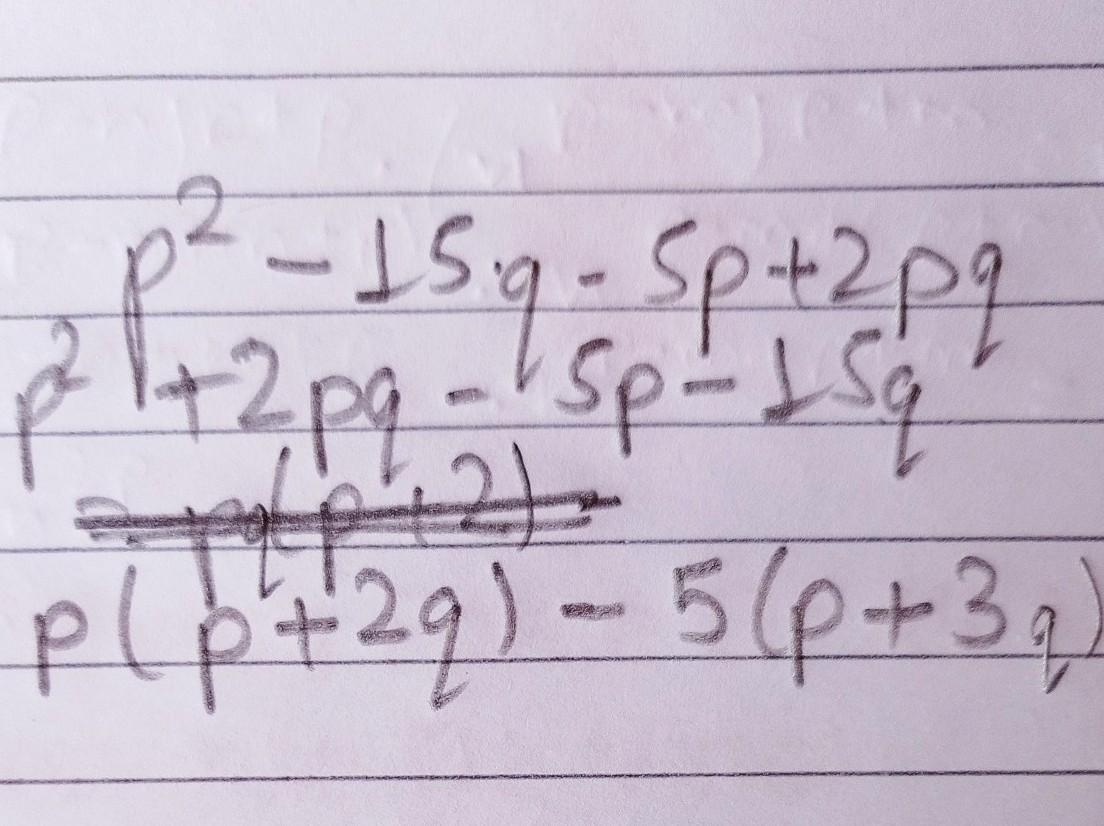 p² - 15q - 5p + 2pq
p² + 2pq - 5p - 15q
pq(p+2)
p(p+2q) - 5(p+3q)